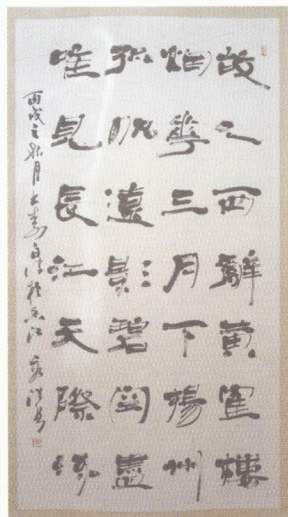 故人西辭黃鶴樓
烟華三月下揚州
孤帆遠影碧空盡
唯見長江天際流
丙戌之秋月